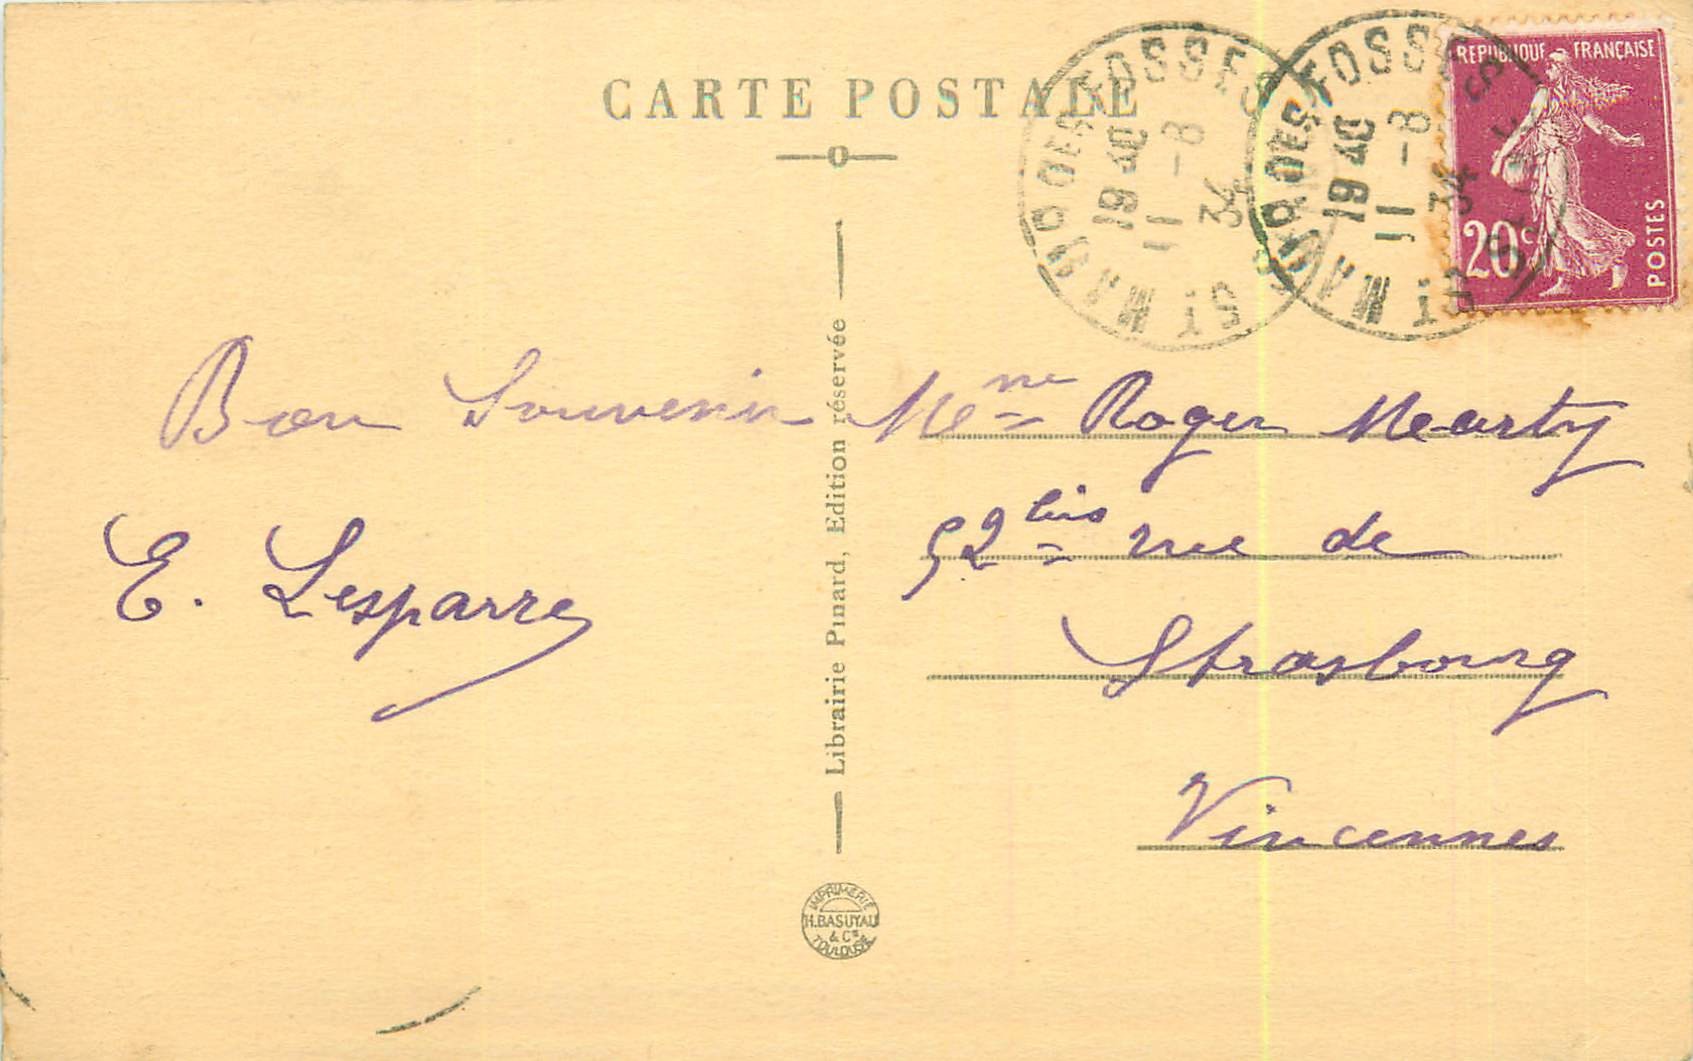 CARTE POSTALE
REPUBLIQUE FRANÇAISE
20c POSTES
ST MAUR DES FOSSES
19 30
11 - 8
34
ST MAUR DES FOSSES
19 30
11 - 8
34
Bon Souvenir
E. Lesparre
Librairie Pinard, Edition réservée
Mme Roger Marty
52 bis rue de
Strasbourg
Vincennes
IMPRIMERIE
H. BASUYAU
& Cie
TOULOUSE